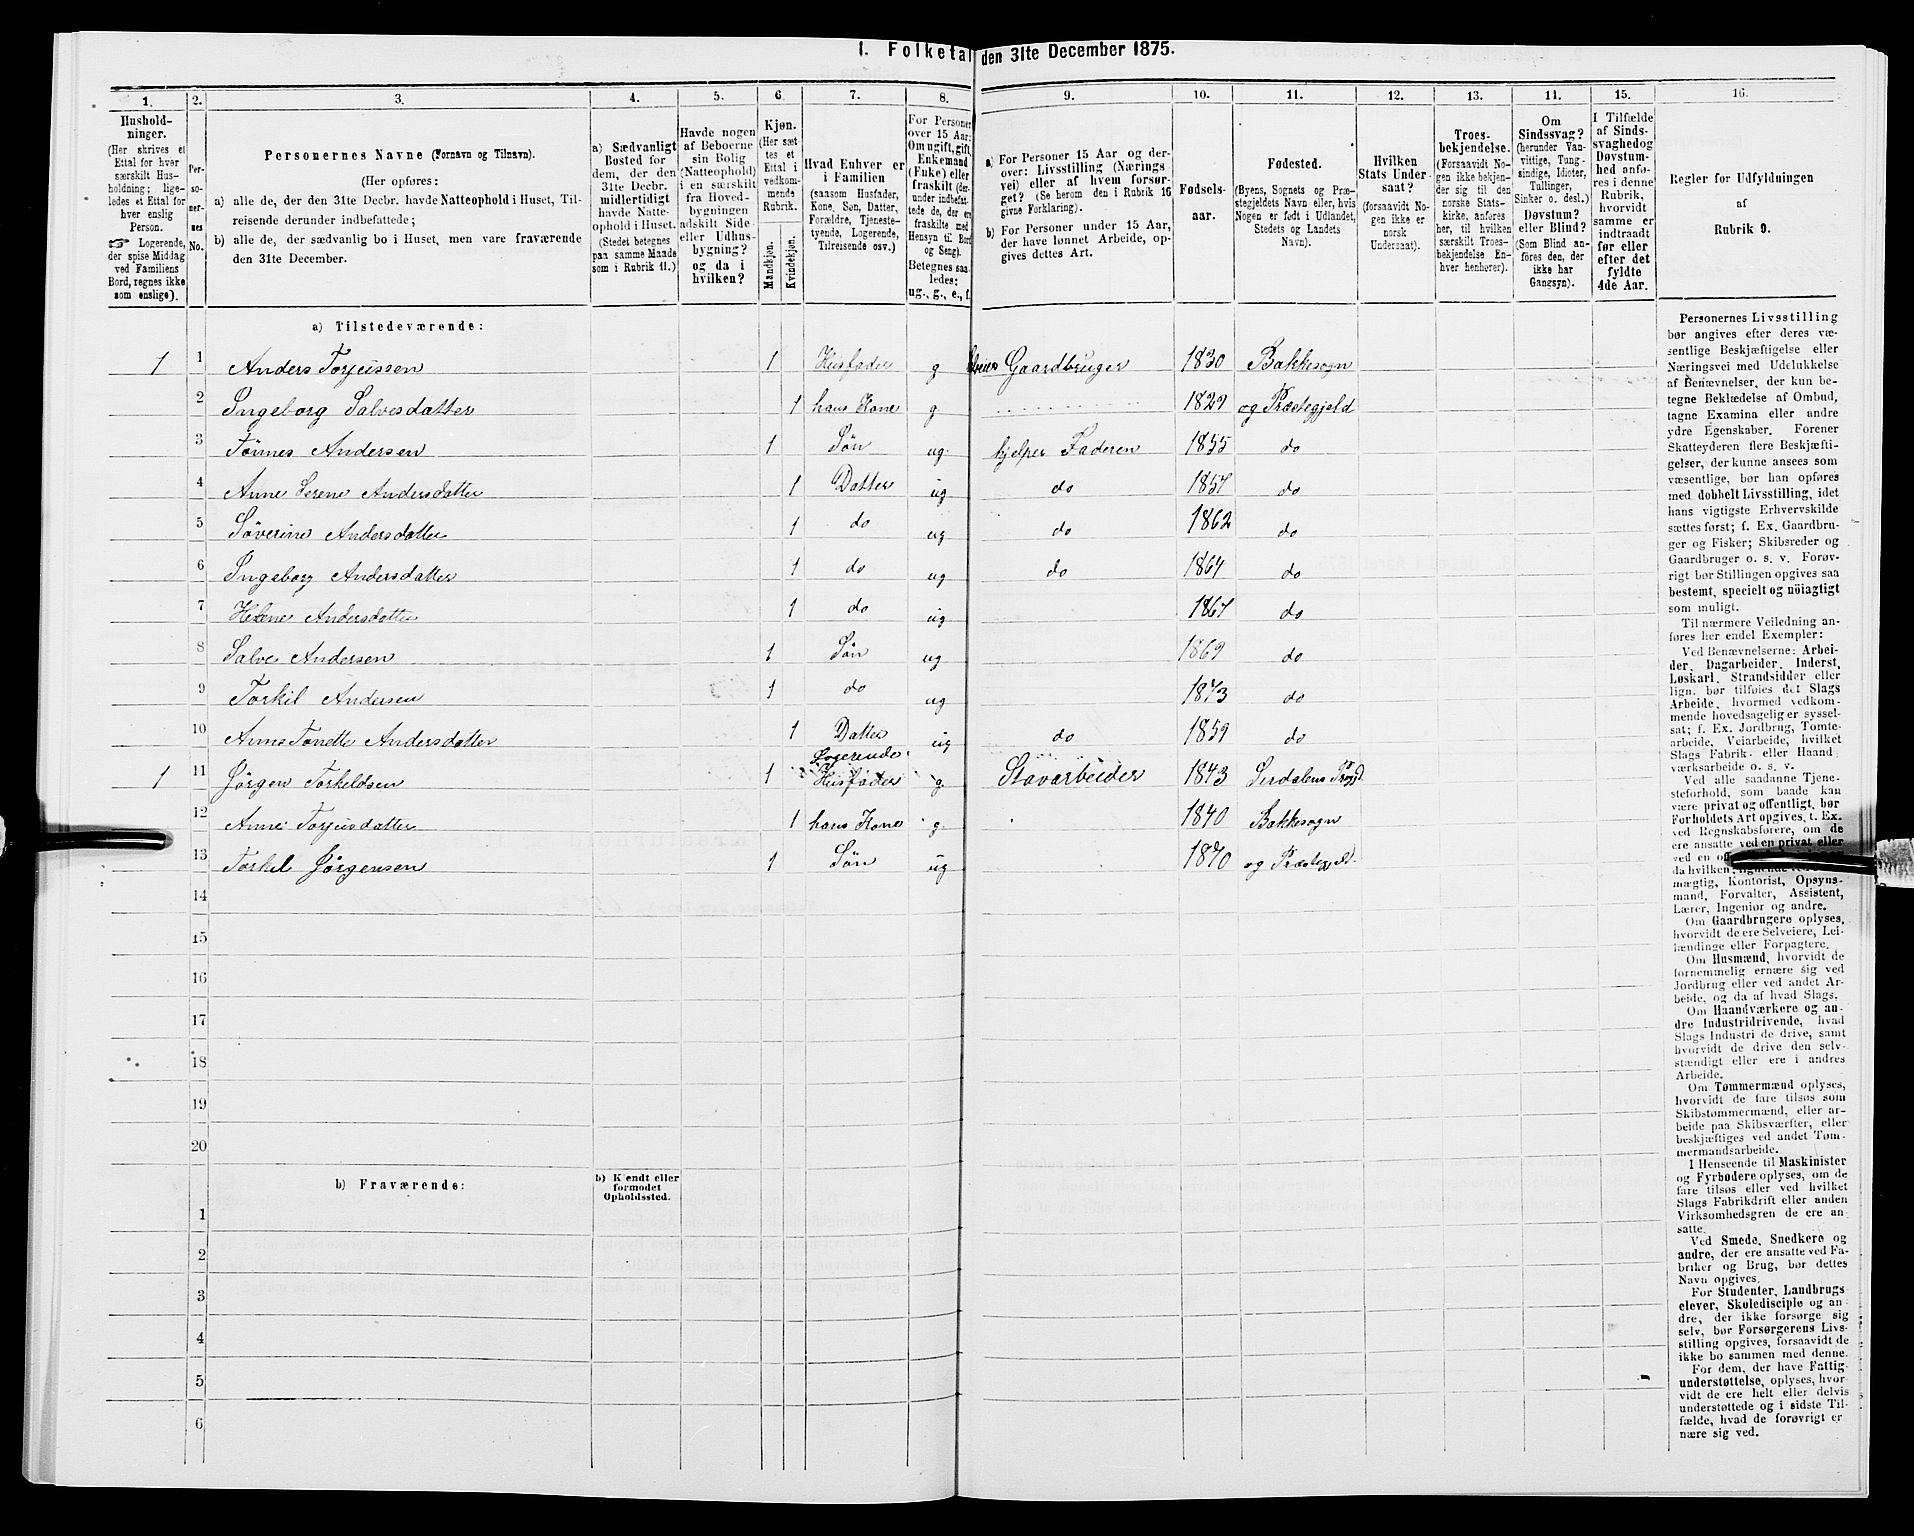 1. Folketal den 31te December 1875.
1. 2. 3. 4. 5. 6. 7. 8. 9. 10. 11. 12. 13. 14. 15. 16.
Hushold-
ninger.
(Her skrives et
Ettal for hver
særskilt Hus-
holdning; lige-
ledes et Ettal for
hver enslig
Person.
☞ Logerende,
der spise Middag
ved Familiens
Bord, regnes ikke
som enslige).
Per-
so-
ner-
nes
No.
Personernes Navne (Fornavn og Tilnavn).
(Her opføres:
a) alle de, der den 31te Decbr. havde Natteophold i Huset, Til-
reisende derunder indbefattede;
b) alle de, der sædvanlig bo i Huset, men vare fraværende
den 31te December.
a) Sædvanligt
Bosted for
dem, der den
31te Decbr.
midlertidigt
havde Natte-
ophold i Huset.
(Stedet betegnes
paa samme Maade
som i Rubrik 11.)
Havde nogen
af Beboerne
sin Bolig
(Natteophold)
i en særskilt
fra Hoved-
bygningen
adskilt Side-
eller Udhus-
bygning?
og da i
hvilken?
Kjøn.
(Her sæt-
tes et
Ettal i
vedkom-
mende
Rubrik.
Mandkjøn.
Kvindekjøn.
Hvad Enhver er
i Familien
(saasom Husfader,
Kone, Søn, Datter,
Forældre, Tjeneste-
tyende, Logerende,
Tilreisende osv.)
For Personer
over 15 Aar:
Om ugift, gift,
Enkemand
(Enke) eller
fraskilt (der-
under indbefat-
tede de, der ere
fraskilte med
Hensyn til Bord
og Seng).
Betegnes saa-
ledes:
ug., g., e., f.
a) For Personer 15 Aar og der-
over: Livsstilling (Nærings-
vei) eller af hvem forsør-
get? (Se herom den i Rubrik 16
givne Forklaring).
b) For Personer under 15 Aar,
der have lønnet Arbeide, op-
gives dettes Art.
Fødsels-
aar.
Fødested.
(Byens, Sognets og Præ-
stegjeldets Navn eller, hvis
Nogen er født i Udlandet,
Stedets og Landets
Navn).
Hvilken
Stats Under-
saat?
(forsaavidt No-
gen ikke er
norsk
Undersaat).
Troes-
bekjendelse.
(Forsaavidt No-
gen ikke bekjen-
der sig til den
norske Stats-
kirke, anføres
her, til hvilken
særskilt Troes-
bekjendelse En-
hver henhører).
Om
Sindssvag?
(herunder Van-
vittige, Tung-
sindige, Idioter,
Tullinger,
Sinker o. desl.)
Døvstum?
eller Blind?
(Som Blind an-
føres den, der
ikke har
Gangsyn).
I Tilfælde
af Sinds-
svaghed og
Døvstum-
hed anfø-
res i denne
Rubrik,
hvorvidt
samme er
indtraadt
før eller
efter det
fyldte
4de Aar.
Regler for Udfyldningen
af
Rubrik 9.
a) Tilstedeværende:
1 1 Anders Torjussen 1 Husfader g Gaardbruger 1830 Bakkesogn
2 Ingeborg Salvesdatter 1 hans Kone g. 1829 og Præstegjeld
3 Tönnes Andersen 1 Sön ug. hjelper Faderen 1855 do
4 Anne Serene Andersdatter 1 Datter ug do 1857 do
5 Söverine Andersdatter 1 do ug do 1862 do
6 Ingeborg Andersdatter 1 do ug do 1864 do
7 Helene Andersdatter 1 do ug 1867 do
8 Salve Andersen 1 Sön ug 1869 do
9 Torkil Andersen 1 do ug 1873 do
10 Anne Tonette Andersdatter 1 Datter ug do 1859 do
Logerende
1 11 Jörgen Torkeldsen 1 Husfader g. Stavarbeider 1843 Sirdalens
12 Anne Torjusdatter 1 hans Kone g. 1840 Bakkesogn
13 Torkil Jörgensen 1 Sön ug 1870 og Præstegjeld.
14
15
16
17
18
19
20
b) Fraværende:
b) Kjendt eller
formodet
Opholdssted.
1
2
3
4
5
6
Personernes Livsstilling
bør angives efter deres væ-
sentlige Beskjæftigelse eller
Næringsvei med Udelukkelse
af Benævnelser, der kun be-
tegne Beklædelse af Ombud,
tagne Examina eller andre
ydre Egenskaber. Forener
Skatteyderen flere Beskjæfti-
gelser, der kunne ansees som
væsentlige, bør han opføres
med dobbelt Livsstilling, idet
hans vigtigste Erhvervskilde
sættes først; f. Ex. Gaardbru-
ger og Fisker; Skibsreder og
Gaardbruger o. s. v. Forøv-
rigt bør Stillingen opgives saa
bestemt, specielt og nöiagtigt
som muligt.
Til nærmere Veiledning an-
føres her endel Exempler:
Ved Benævnelserne: Arbei-
der, Dagarbeider, Inderst,
Løskarl, Strandsidder eller
lign. bør tilføies det Slags
Arbeide, hvormed vedkom-
mende hovedsagelig er syssel-
sat; f. Ex. Jordbrug, Tomte-
arbeide, Veiarbeide, hvilket
Slags Fabrik- eller Haand-
værksarbeide o. s. v.
Ved alle saadanne Tjene-
steforhold, som baade kan
være privat og offentligt, bør
Forholdets Art opgives, t. Ex.
ved Regnskabsførere, om de
ere ansatte ved en privat eller
ved en
da hvilken;
mægtig, Kontorist, Opsyns-
mand, Forvalter, Assistent,
Lærer, Ingeniør og andre.
Om Gaardbrugere oplyses,
hvorvidt de ere Selveiere, Lei-
lændinge eller Forpagtere.
Om Husmænd, hvorvidt de
fornemmelig ernære sig ved
Jordbrug eller ved andet Ar-
beide, og da af hvad Slags.
Om Haandværkere og an-
dre Industridrivende, hvad
Slags Industri de drive, samt
hvorvidt de drive den selv-
stændigt eller ere i andres
Arbeide.
Om Tømmermænd oplyses,
hvorvidt de fare tilsøs som
Skibstømmermænd, eller ar-
beide paa Skibsværfter, eller
beskjæftiges ved andet Tøm-
mermandsarbeide.
I Henseende til Maskinister
og Fyrbødere oplyses, om de
fare tilsøs eller ved hvilket
Slags Fabrikdrift eller anden
Virksomhedsgren de ere an-
satte.
Ved Smede, Snedkere og
andre, der ere ansatte ved Fa-
briker og Brug, bør dettes
Navn opgives.
For Studenter, Landbrugs-
elever, Skoledisciple og an-
dre, der ikke forsørge sig
selv, bør Forsørgerens Livs-
stilling opgives, forsaavidt de
ikke bo sammen med denne.
For dem, der have Fattig-
understøttelse, oplyses, hvor-
vidt de ere helt eller delvis
understøttede og i sidste Til-
fælde, hvad de forøvrigt er-
nære sig ved.